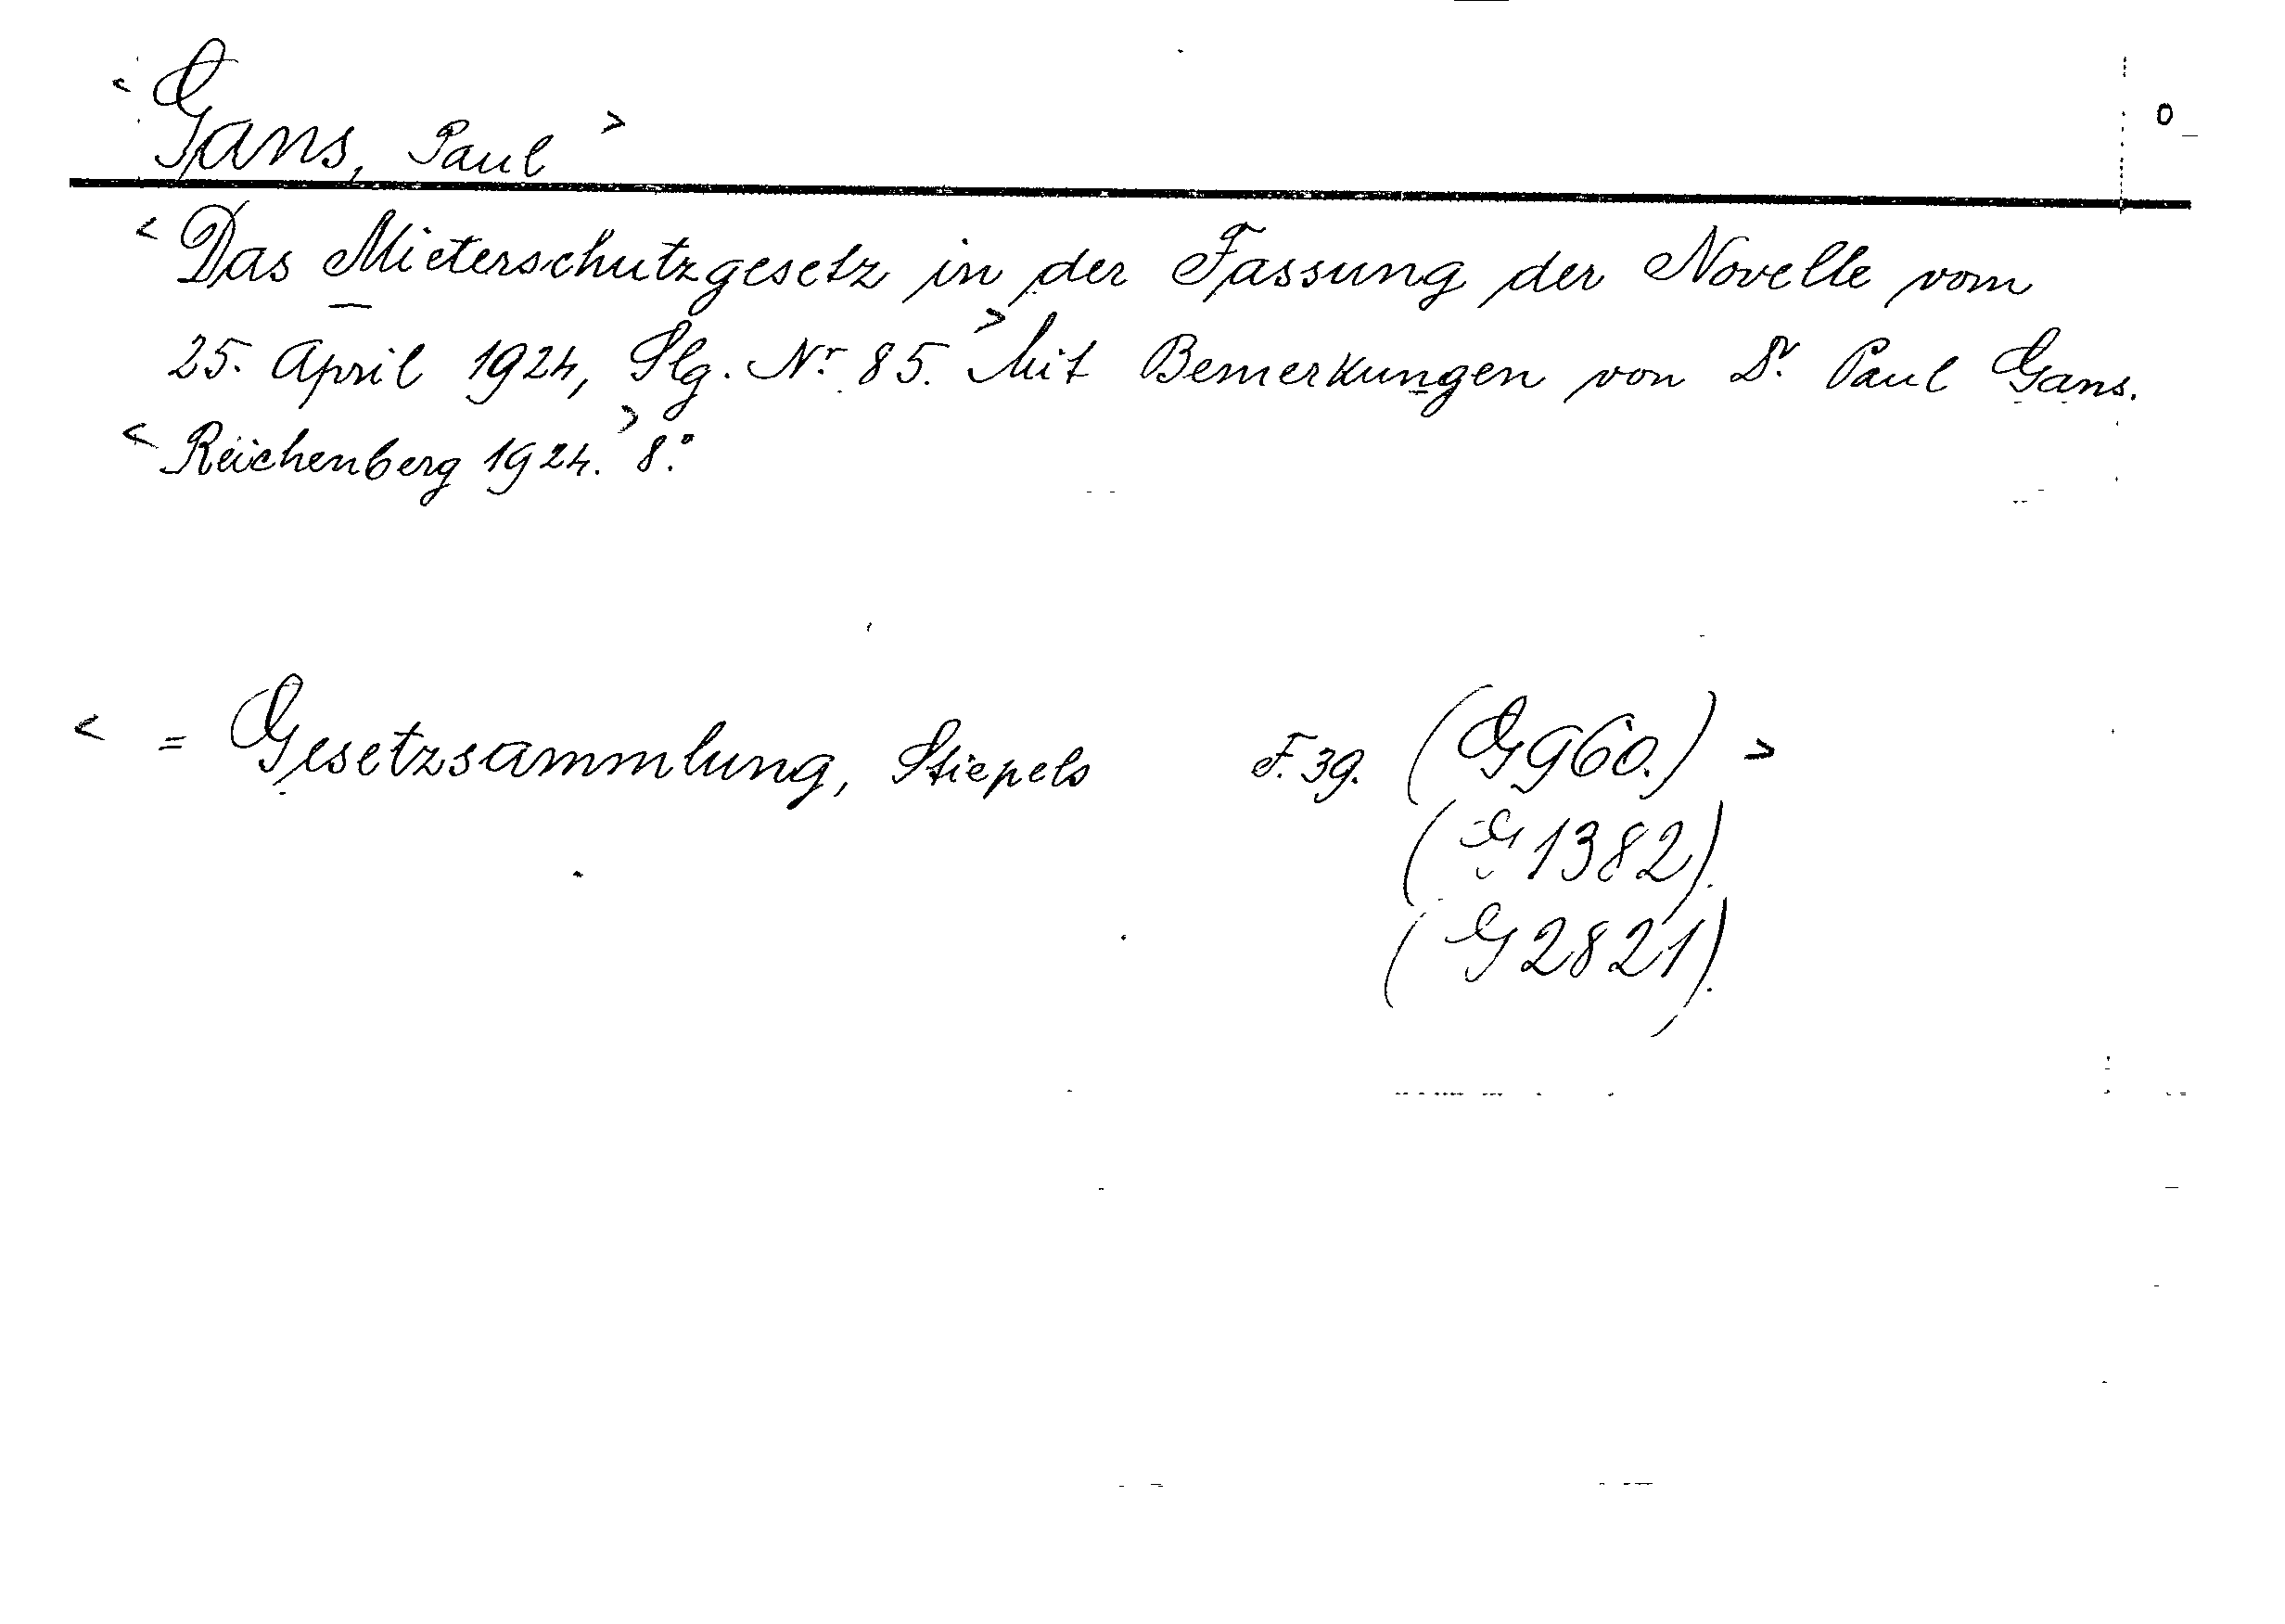 < Gans, Paul > 0
< Das Mieterschutzgesetz in der Fassung der Novelle vom
25. April 1924, Slg. Nr. 85. > Mit Bemerkungen von Dr. Paul Gans.
< Reichenberg 1924. > 8.°
< = Gesetzsammlung, Stiepels F. 39. (G 960.) >
(G 1382).
(G 2821).